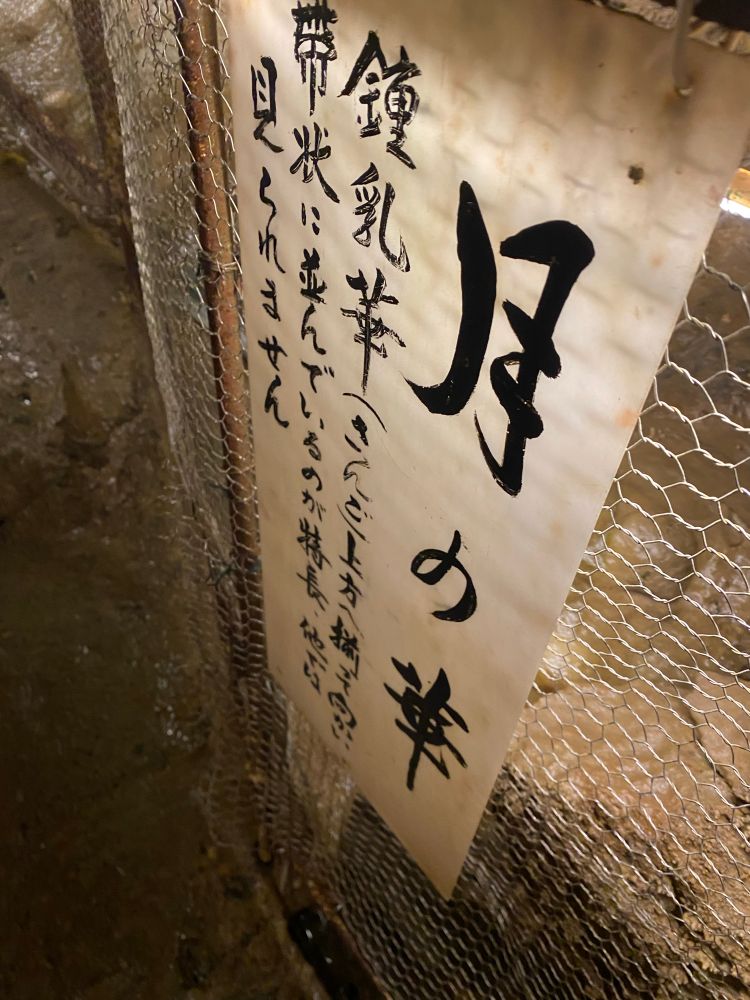 月の華
鍾乳華(さんご)上方へ揃
帯状に並んでいるのが特長、他では
見られません